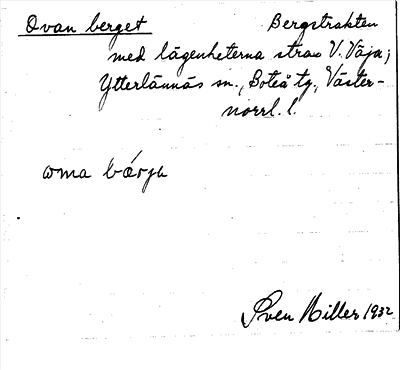 Ovan berget Bergstrakten
med lägenheterna strax V. Väja;
Ytterlännäs sn., Boteå tg., Väster-
norrl. l.
Sven Miller 1932